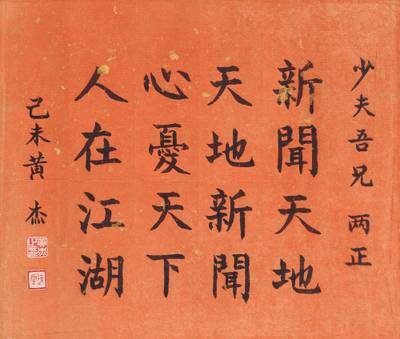 少夫吾兄 两正
新聞天地
天地新聞
心憂天下
人在江湖
己未黄杰